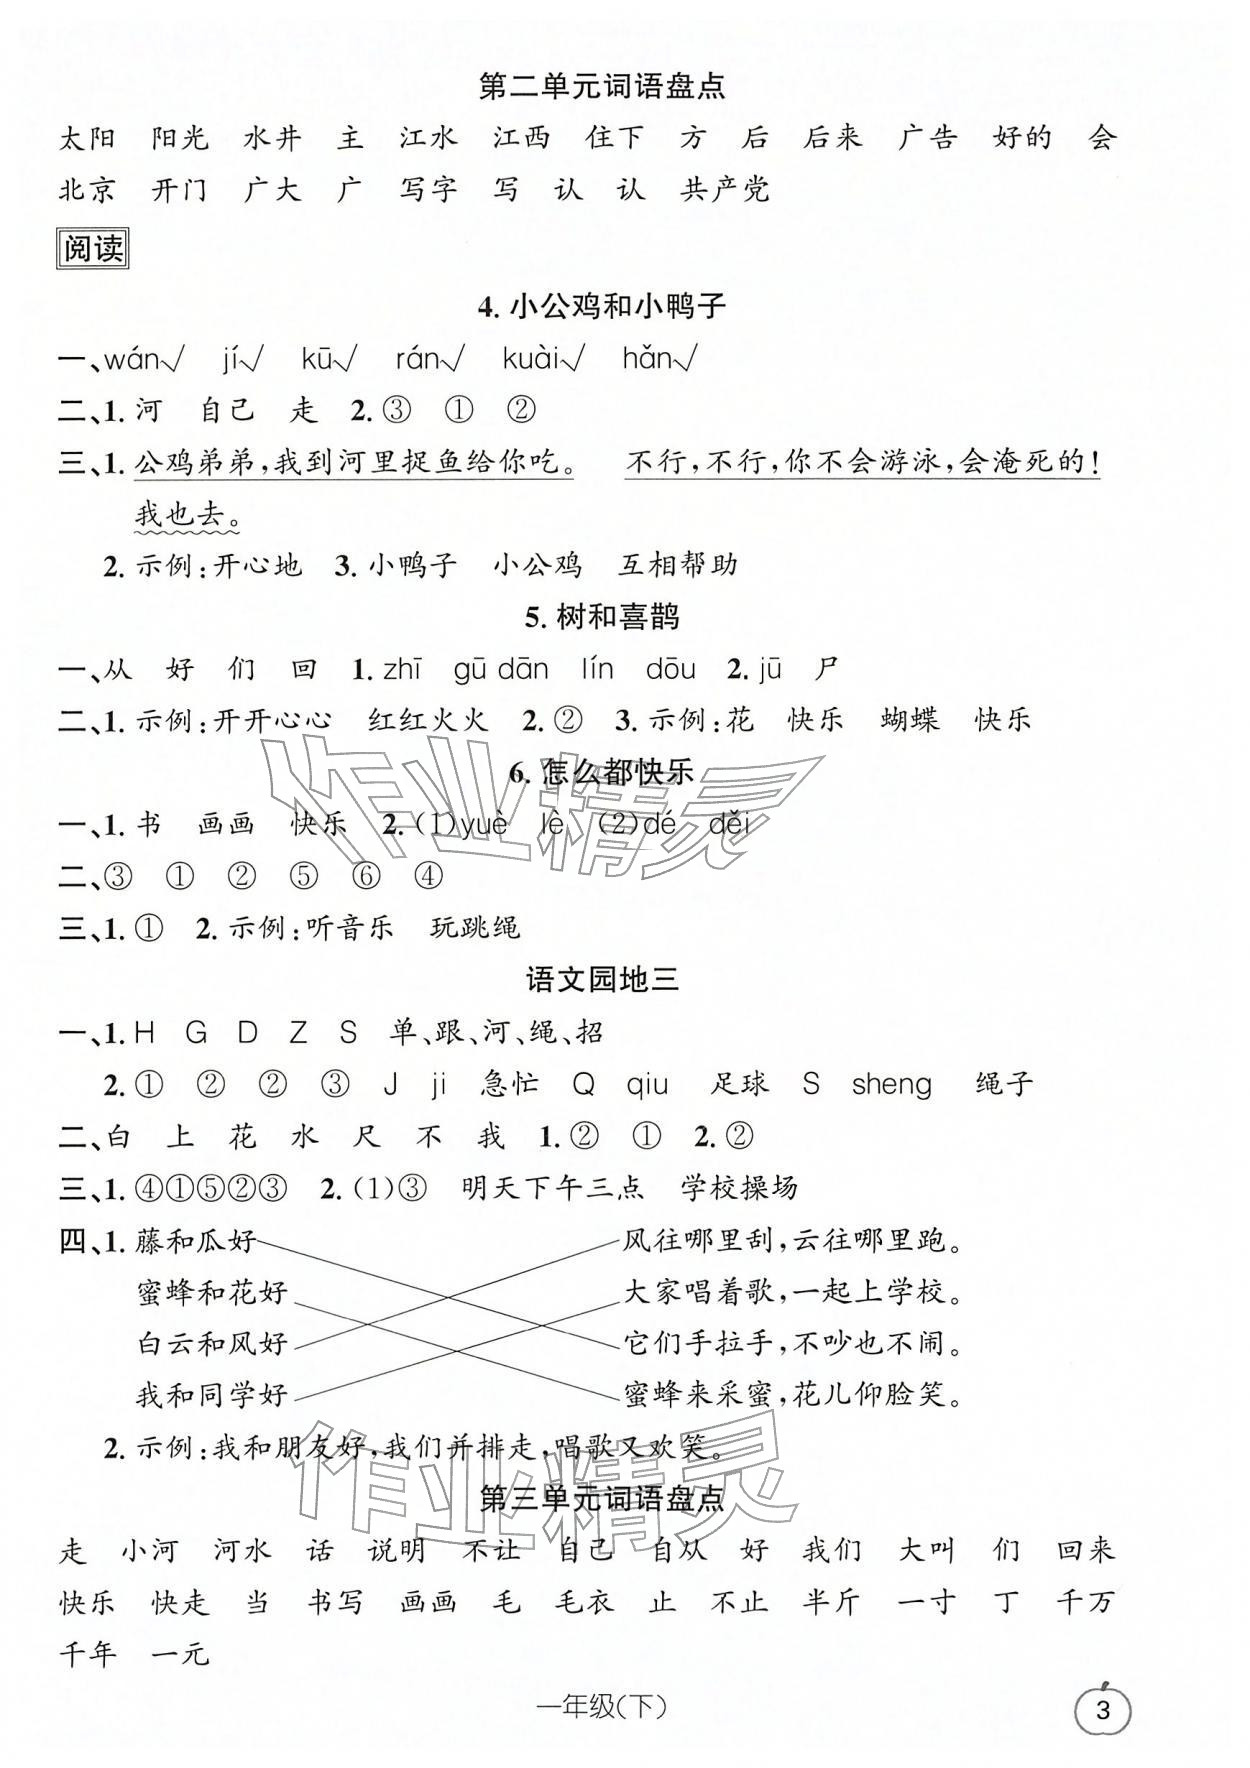 第二单元词语盘点
太阳 阳光 水井 主 江水 江西 住下 方 后 后来 广告 好的 会
北京 开门 广大 广 写字 写 认 认 共产党
阅读
4. 小公鸡和小鸭子
一、wán√ jí√ kū√ rán√ kuài√ hǎn√
二、1. 河 自己 走 2. ③ ① ②
三、1. 公鸡弟弟,我到河里捉鱼给你吃。 不行,不行,你不会游泳,会淹死的!
我也去。
2. 示例:开心地 3. 小鸭子 小公鸡 互相帮助
5. 树和喜鹊
一、从 好 们 回 1. zhī gū dān lín dōu 2. jū 尸
二、1. 示例:开开心心 红红火火 2. ② 3. 示例:花 快乐 蝴蝶 快乐
6. 怎么都快乐
一、1. 书 画画 快乐 2. (1)yuè lè (2)dé děi
二、③ ① ② ⑤ ⑥ ④
三、1. ① 2. 示例:听音乐 玩跳绳
语文园地三
一、1. H G D Z S 单、跟、河、绳、招
2. ① ② ② ③ J ji 急忙 Q qiu 足球 S sheng 绳子
二、白 上 花 水 尺 不 我 1. ② ① 2. ②
三、1. ④①⑤②③ 2. (1)③ 明天下午三点 学校操场
四、1. 藤和瓜好 风往哪里刮,云往哪里跑。
蜜蜂和花好 大家唱着歌,一起上学校。
白云和风好 它们手拉手,不吵也不闹。
我和同学好 蜜蜂来采蜜,花儿仰脸笑。
2. 示例:我和朋友好,我们并排走,唱歌又欢笑。
第三单元词语盘点
走 小河 河水 话 说明 不让 自己 自从 好 我们 大叫 们 回来
快乐 快走 当 书写 画画 毛 毛衣 止 不止 半斤 一寸 丁 千万
千年 一元
一年级(下)
3
作业精灵
作业精灵